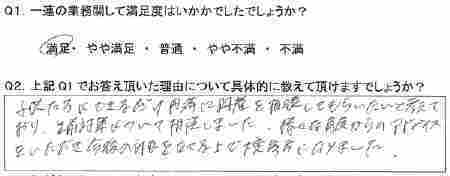 Q1. 一連の業務関して満足度はいかかでしたでしょうか？
満足・ やや満足 ・ 普通 ・ やや不満 ・ 不満
Q2. 上記Q1でお答え頂いた理由について具体的に教えて頂けますでしょうか？
子供たちにできるだけ円満に財産を相続してもらいたいと考えて
おり、生前対策について相談しました。様々な角度からのアドバイス
をいただき今後の対策をなてる上で大変参考になりました。